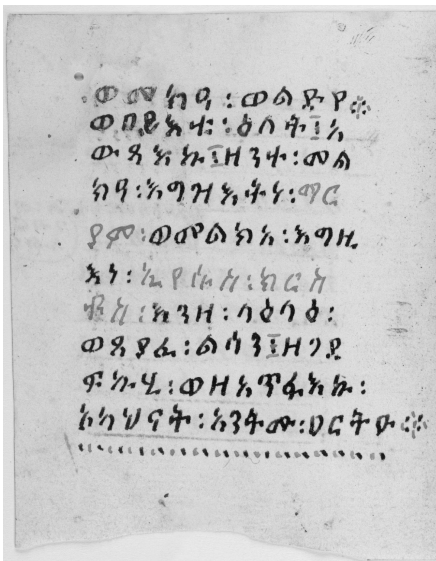 ወመክዓ፡ወልድየ፨
ወበይእቲ፡ዕለት፩አ
ውጻእኩ፩ዘንተ፡መል
ክዓ፡እግዝእትነ፡ማር
ያም፡ወመልክአ፡እግዚ
እነ፡ኢየሱስ፡ክርስ
ቶስ፡እንዘ፡ሳዕሳዕ፡
ወጻያፈ፡ልሳን፩ዘጎየ
ፍኩሂ፡ወዘአጥፋእኩ፡
አካህናት፡አንትሙ፡ዐርትዑ፨